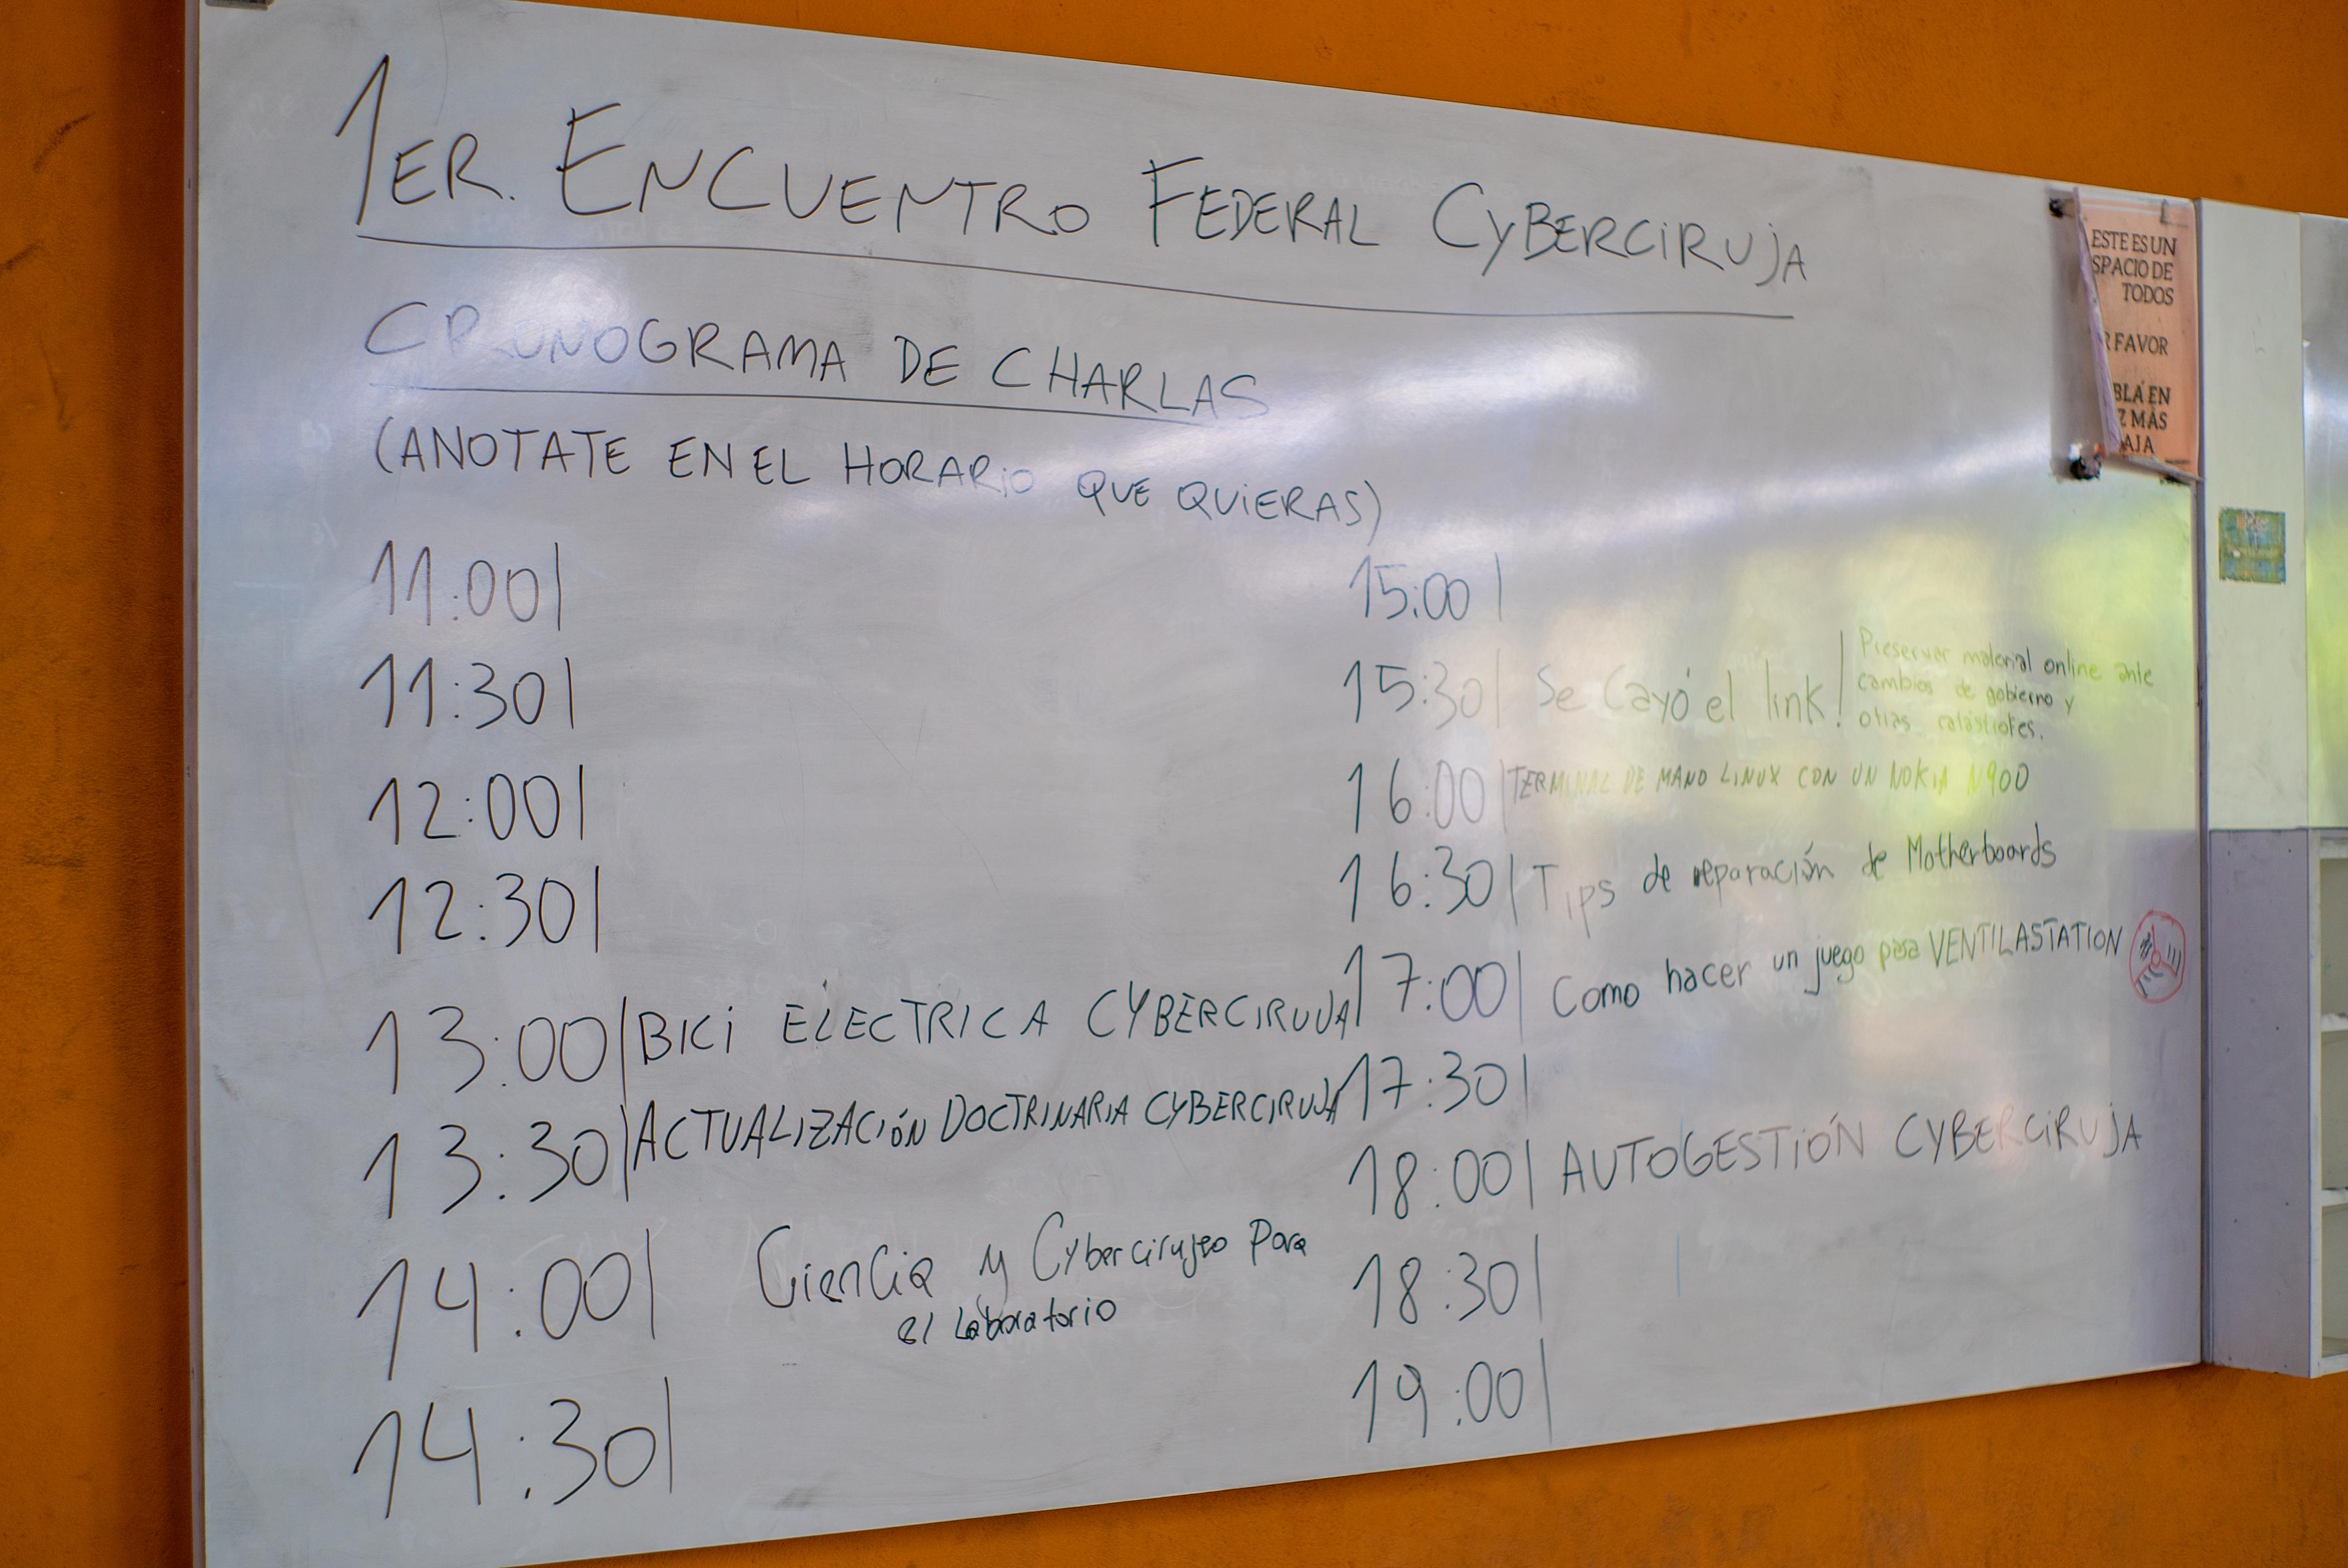 1ER. ENCUENTRO FEDERAL CYBERCIRUJA
CRONOGRAMA DE CHARLAS
(ANOTATE EN EL HORARIO QUE QUIERAS)
11:00|
11:30|
12:00|
12:30|
13:00| BICI ELECTRICA CYBERCIRUJA
13:30| ACTUALIZACIÓN DOCTRINARIA CYBERCIRUJA
14:00| Ciencia y Cybercirujeo Para
el Laboratorio
14:30|
15:00|
15:30| Se Cayó el link! | Preservar material online ante
cambios de gobierno y
otras catástrofes.
16:00| TERMINAL DE MANO LINUX CON UN NOKIA N900
16:30| Tips de reparación de Motherboards
17:00| Como hacer un juego para VENTILASTATION
17:30|
18:00| AUTOGESTIÓN CYBERCIRUJA
18:30|
19:00|
ESTE ES UN
SPACIO DE
TODOS
R FAVOR
BLÁ EN
Z MÁS
AJA